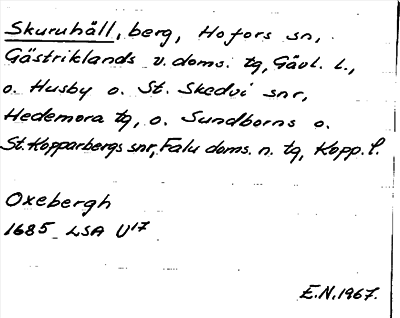 Skuruhäll, berg, Hofors sn,
Gästriklands v. doms. tg, Gävl. l.,
o. Husby o. St. Skedvi snr,
Hedemora tg, o. Sundborns o.
St. Kopparbergs snr, Falu doms. n. tg, Kopp. l.
Oxebergh
1685 LSA U17
E.N. 1967.